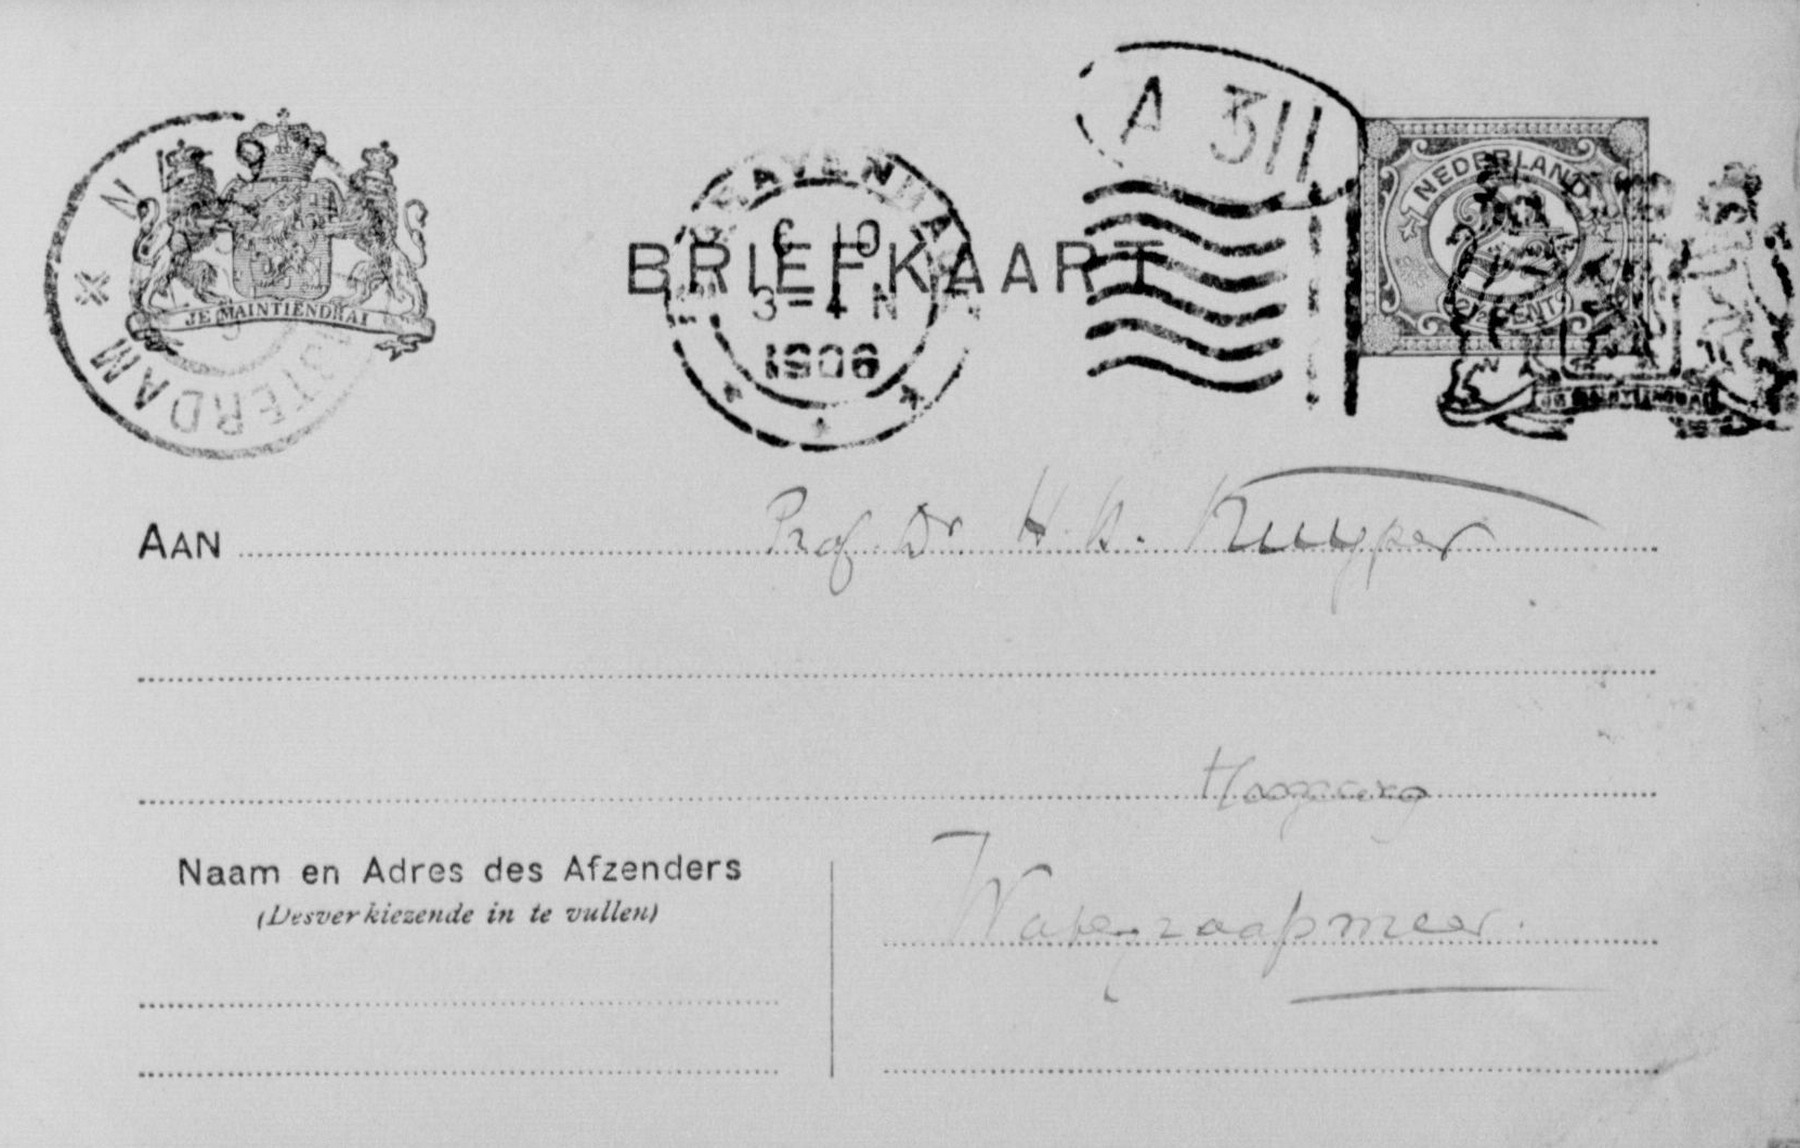 A 311
NEDERLAND
2½ CENT
JE MAINTIENDRAI
AMSTERDAM
'S GRAVENHAGE
6 10
3-4 N
1906
BRIEFKAART
JE MAINTIENDRAI
AAN Prof. Dr. H. H. Kuyper
Naam en Adres des Afzenders
(Desverkiezende in te vullen)